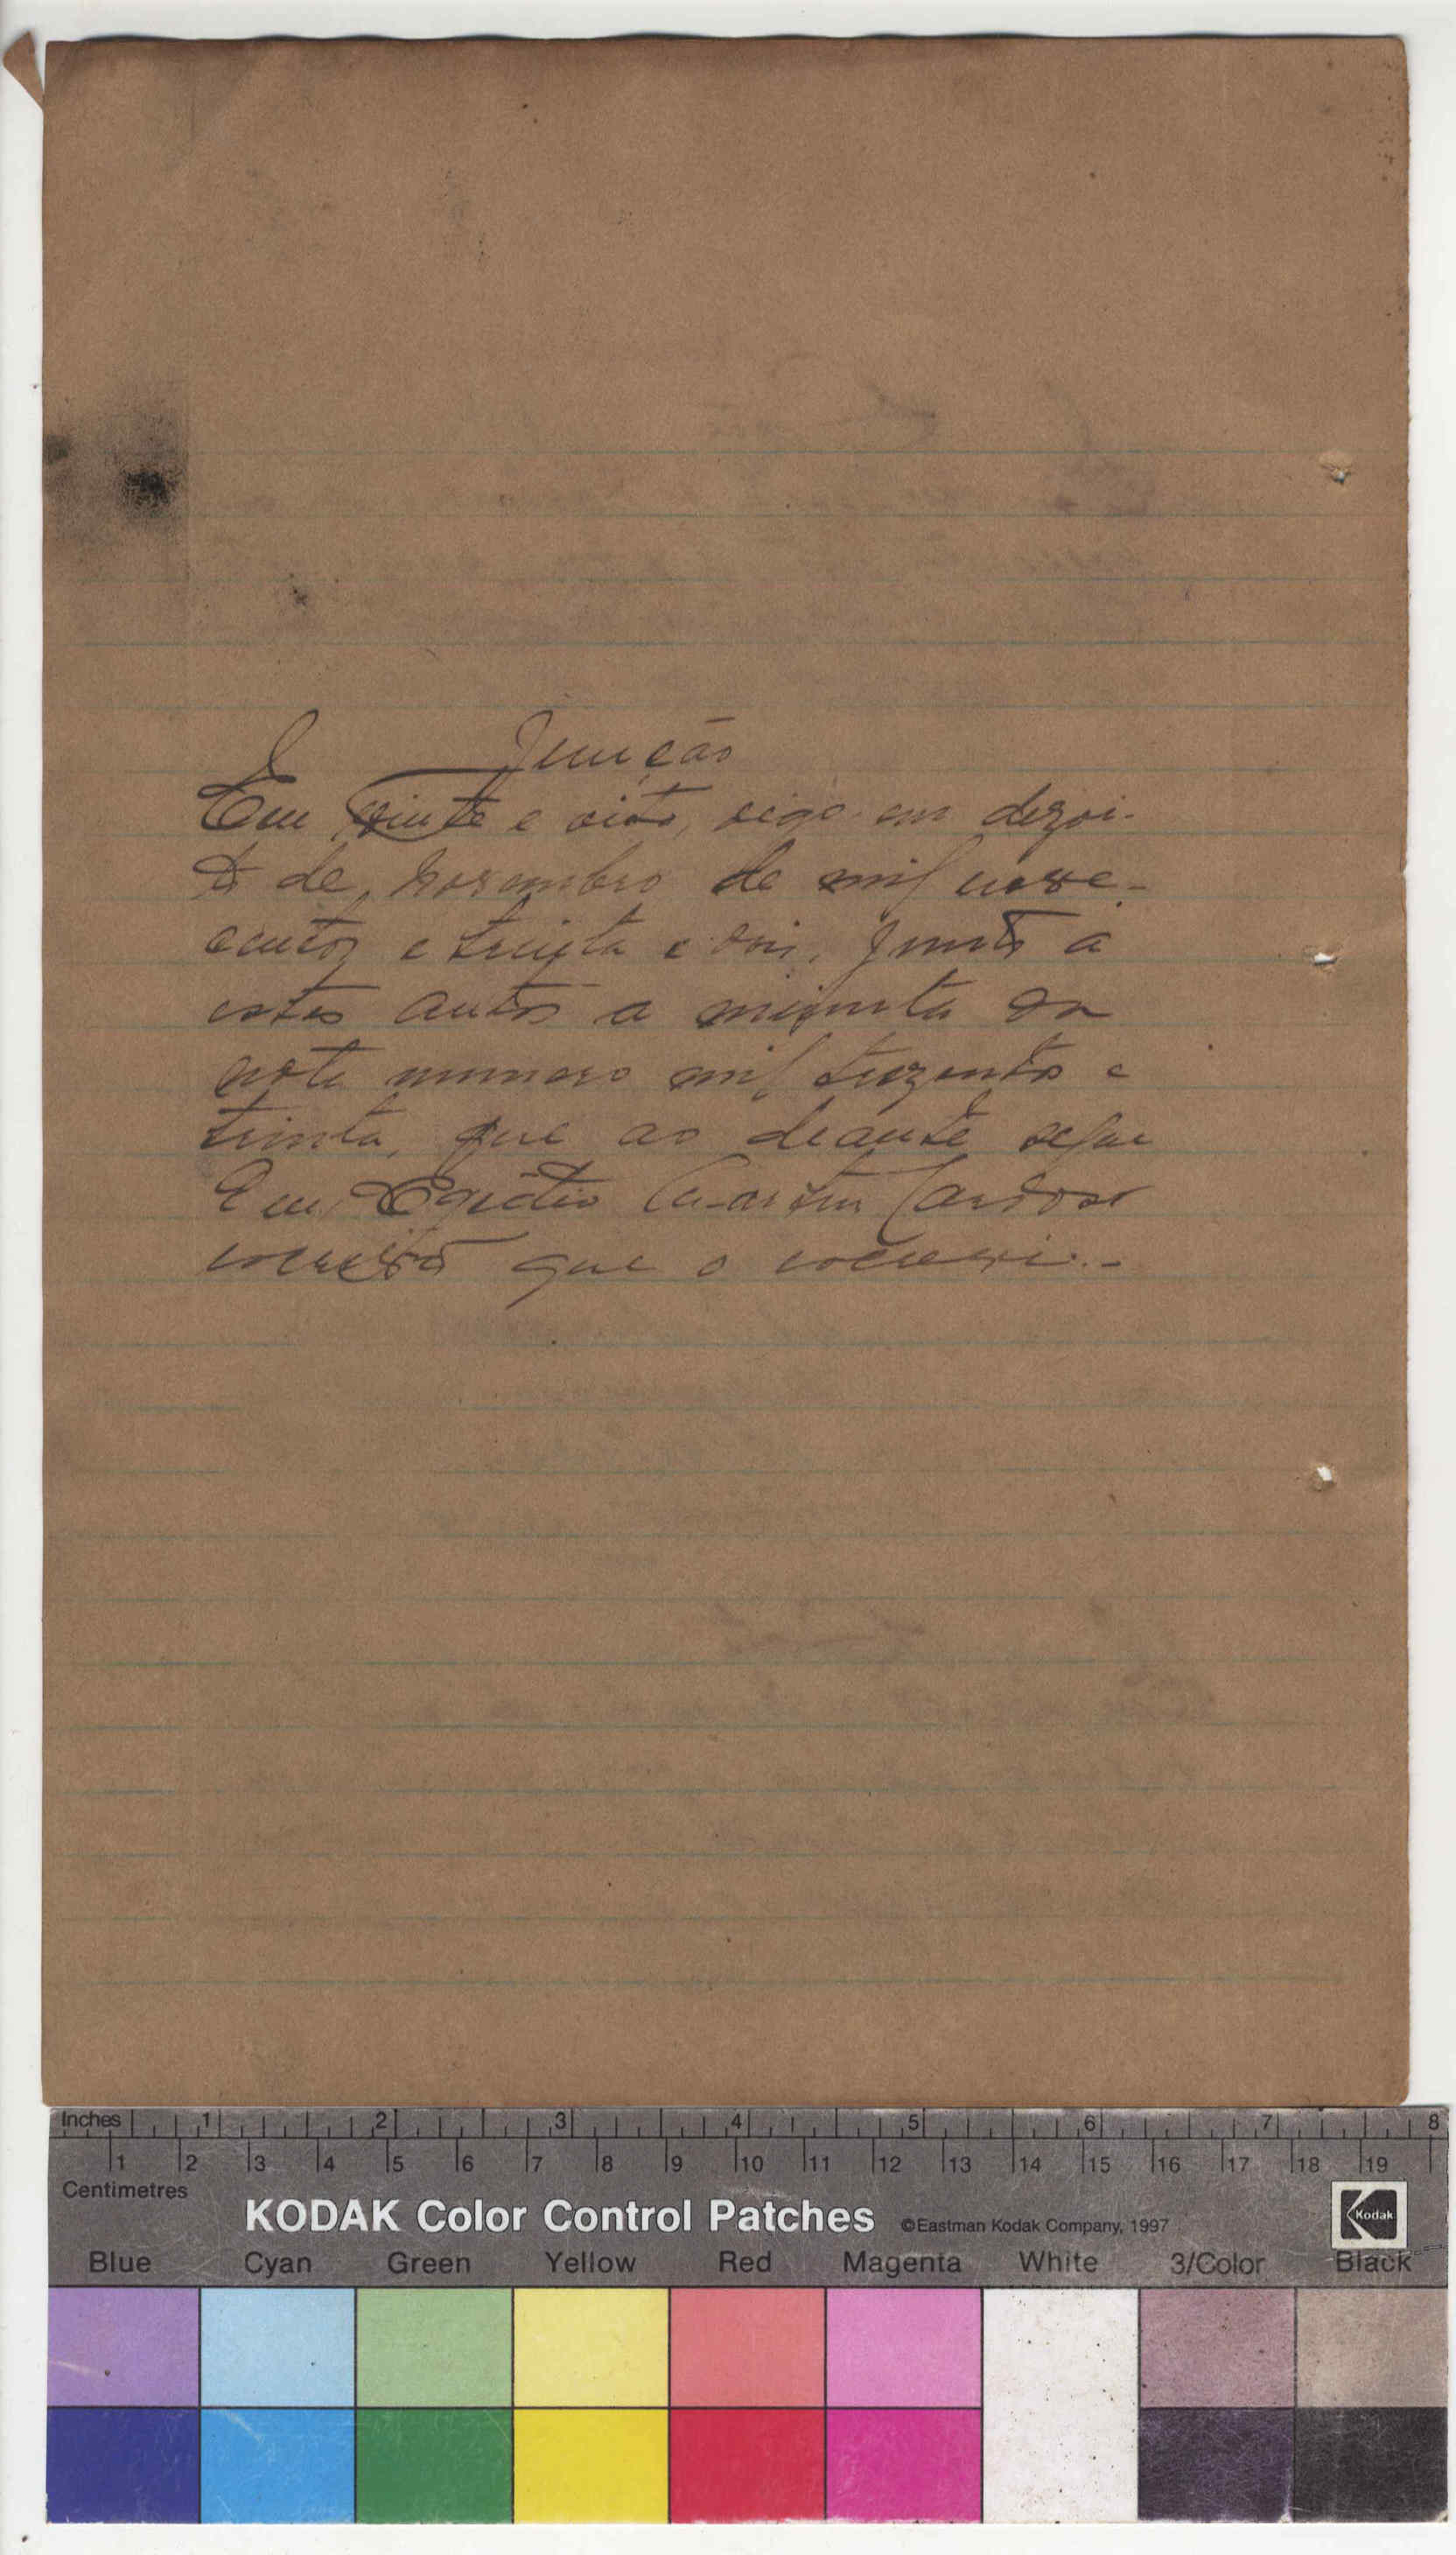 Juncção
Em vinte e oito, digo em dezoi-
to de Novembro de mil nove-
centos e trinta e dois, junto a
estes autos a minuta da
nota numero mil trezentos e
trinta, que ao deante segue
Eu, Egidio Cardoso
escrivão que o escrevi.-
Inches 1 2 3 4 5 6 7 8
1 2 3 4 5 6 7 8 9 10 11 12 13 14 15 16 17 18 19
Centimetres
KODAK Color Control Patches ©Eastman Kodak Company, 1997 Kodak
Blue Cyan Green Yellow Red Magenta White 3/Color Black